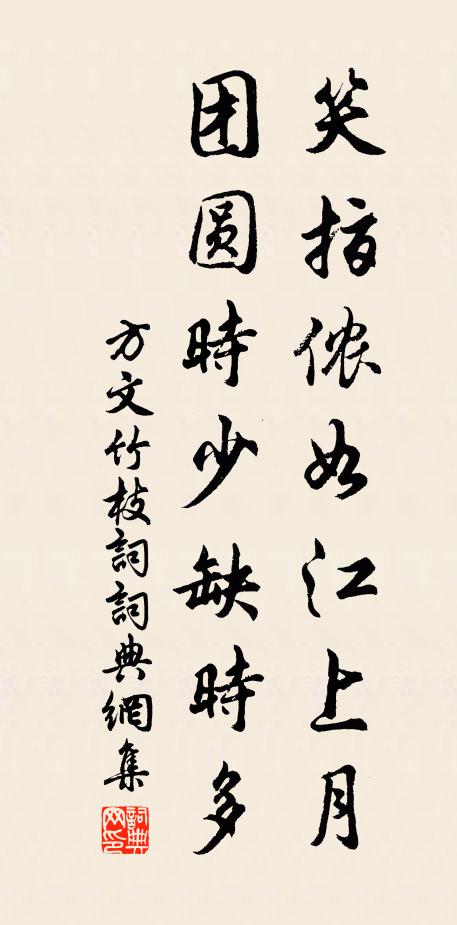 笑指侬如江上月
团圆時少缺時多
方文竹枝詞詞典網集
詞典网印